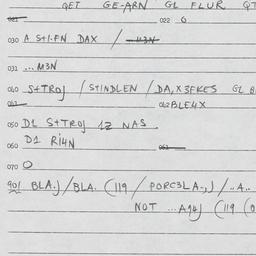 QET GE-ARN GL FLUR QT
021 022 O
030 A S+I.FN DAX / M3N
031 ... M3N
040 S+TROJ / S+INDLEN / DA, X3FKES GL B
041 042 BLE4X
050 D1 S+TROJ 1Z NAS
060 D1 RI4N 061
070 O
901 BLA.J / BLA. (119 / PORC3LA-,J / ..A..
NOT ...A14J (119 (0